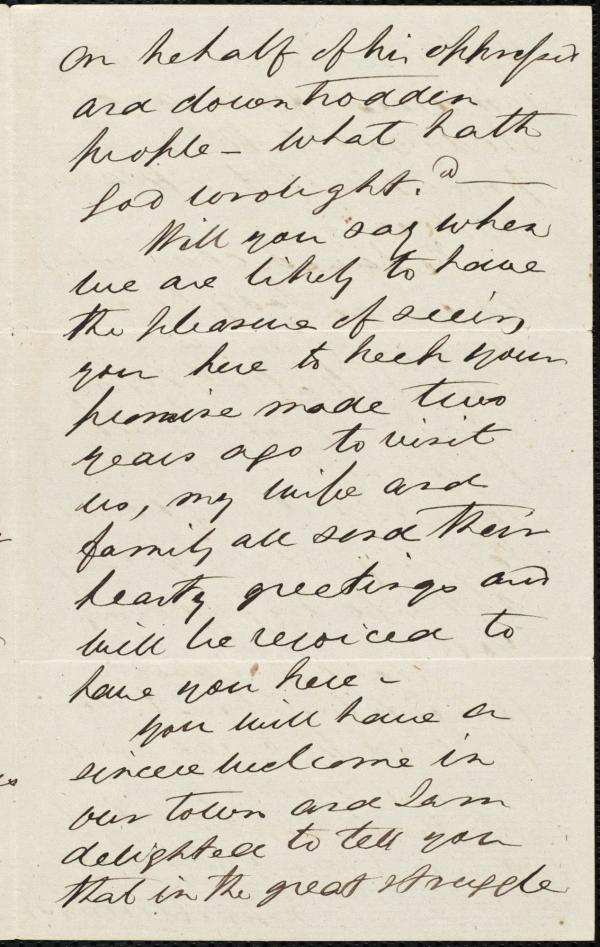 on behalf of his oppressed
and down trodden
people - what hath
God wrought."
Will you say when
we are likely to have
the pleasure of seeing
you here to keep your
promise made two
years ago to visit
us, my wife and
family all send their
hearty greetings and
will be rejoiced to
have you here -
You will have a
sincere welcome in
our town and I am
delighted to tell you
that in the great struggle